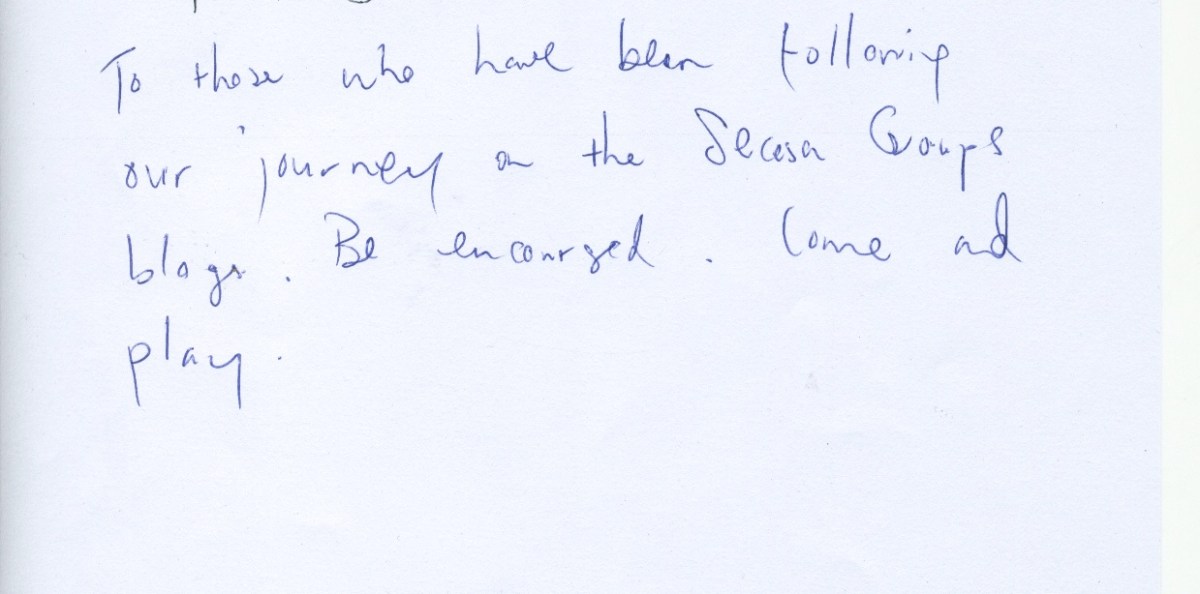 To those who have been following
our journey on the Secasa Groups
blogs. Be encourged. Come and
play.